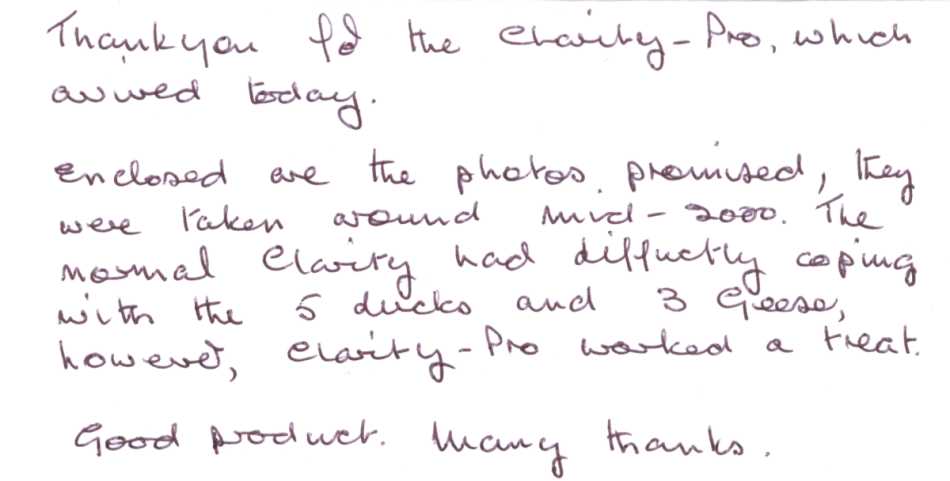 Thankyou for the Clarity-Pro, which
arrived today.
Enclosed are the photos promised, they
were taken around mid-2000. The
normal Clarity had difficulty coping
with the 5 ducks and 3 Geese,
however, Clarity-Pro worked a treat.
Good product. Many thanks.